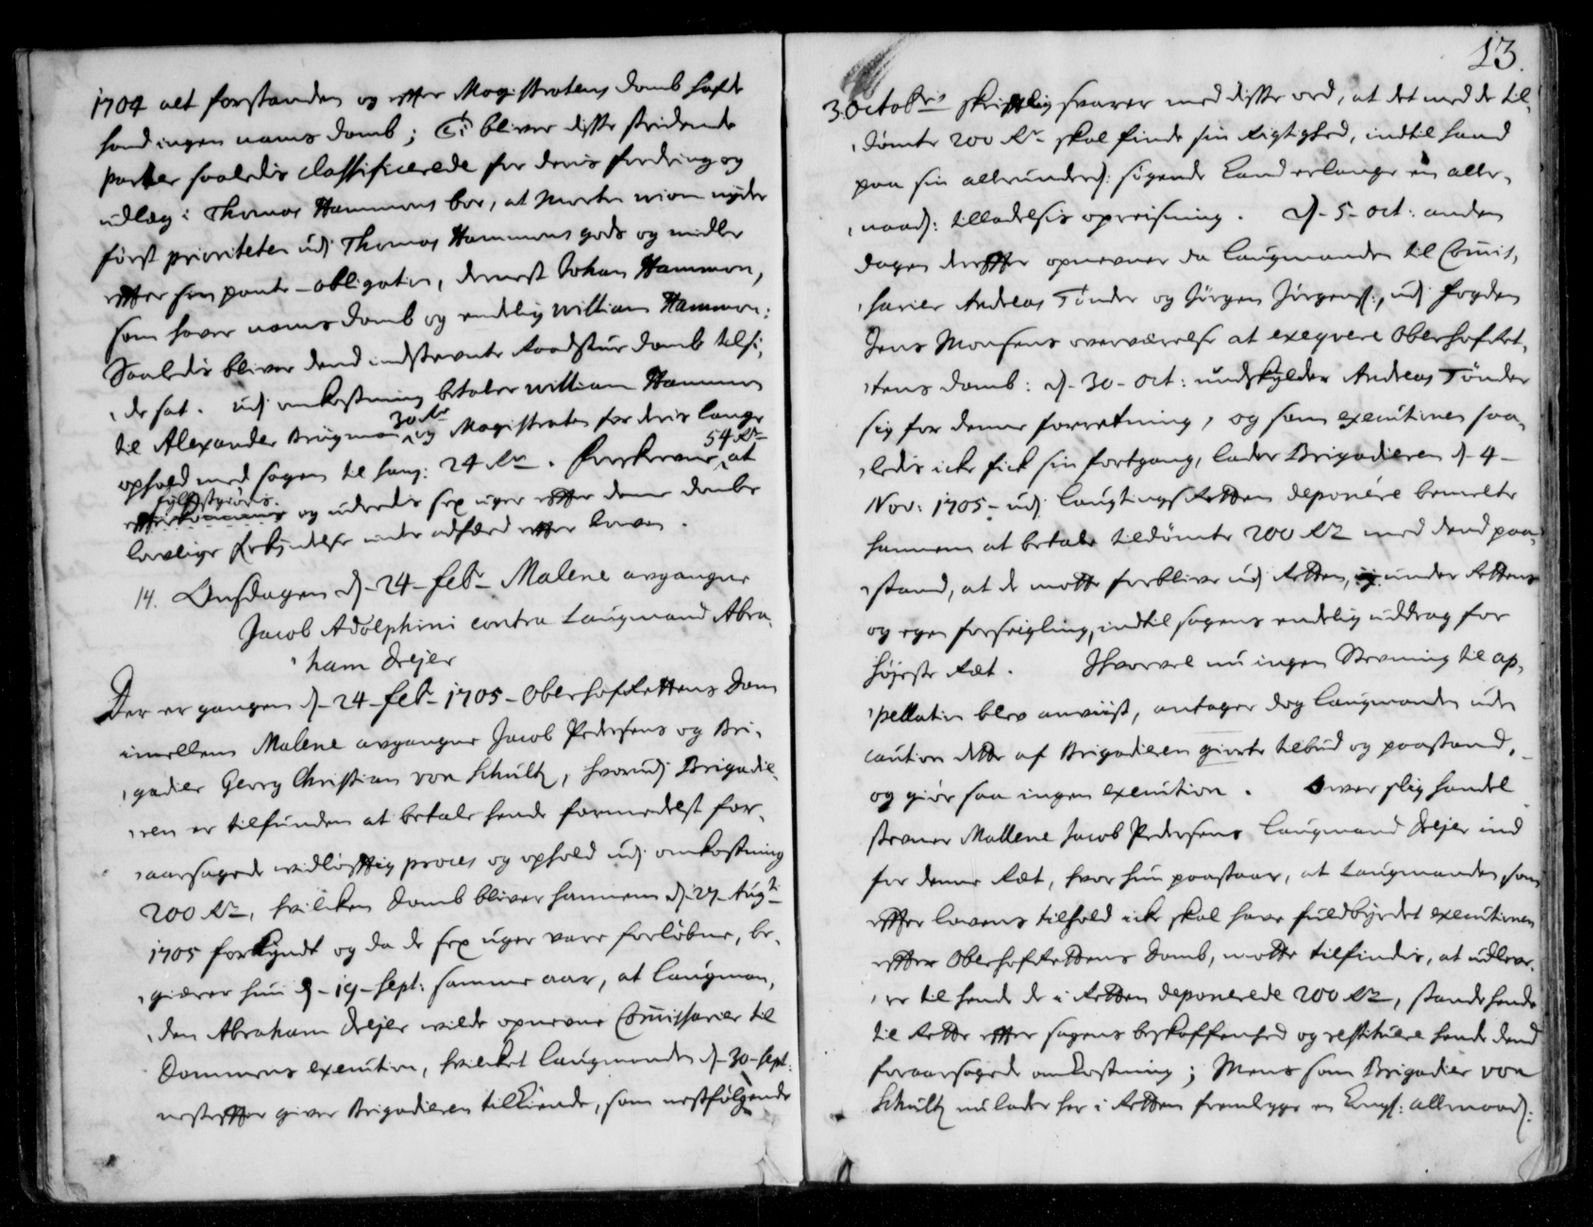 1704 alt forstanden og efter Magistratens domb hafde
hand ingen nams domb; Ti bliver disse stridende
parter saaledis classificerede for deris fordring og
udlæg i Thomas Hammons boe, at Morten niom nyder
først prioriteten udj Thomas Hammons gods og midler
efter sin pante-obligation, dernest Johan Hammon,
som haver nams domb og endelig william Hammon:
Saaledis bliver dend indstevnte Raadstue domb tilsi,
,de sat. udj omkostning betaler william Hammon
til Alexander Brügman 30 Rdr og Magistraten for deris lange
ophold med sagen til hang: 24 Rdr. 54 Rdr at
fyldistgiøris.
efterkommis og udredis sex uger efter denne dombs
lovlige forkyndelse under adfærd efter loven.
14. Onsdagen d-24-febr- Malene avgangne
Jacob Adolphini contra Laugmand Abra,
,ham Drejer
Der er gangen d-24-febr-1705-Oberhofrettens dom
imellem Malene avgangne Jacob Pedersens og Bri,
,gadier Georg Christian von Schultz, hvorudj Brigadie,
,ren er tilfunden at betale hende formedelst for,
,aarsagede widløftig proces og ophold udj omkostning
200 Rdr, hvilken domb bliver hannem d-27-Augti
1705 forkyndt og da de sex uger vare forløbne, be,
,giærer hun d-19-sept: samme aar, at laugman,
,den Abraham Drejer wilde opnevne Commissarier til
dommens execution, hvilket laugmanden d-30-sept:
nestefter giver Brigadieren tilkiende, som nestfølgende
13.
3. Octobris skriftlig svarer med disse ord, at det med de til,
,dømte 200 Rdr skal finde sin Rigtighed, indtil hand
paa sin allerunderd: søgende kand erlange en aller,
,naad: tilladelsis opreisning. d-5-oct: anden
dagen derefter opnevner da laugmanden til Comis,
,sarier Andreas Tønder og Jørgen Jørgens:, udj fogden
Jens Monsens overværelse at exeqvere Oberhofret,
,tens domb: d-30-oct: undskylder Andreas Tønder
sig for denne forretning, og som executionen saa,
,ledis icke fick sin fortgang, lader Brigadieren d-4-
Nov: 1705- udj laugtings Retten deponére bemelte
hannem at betale tildømte 200 Rdr med dend paa,
,stand, at de motte forblive udj Retten, under Rettens
og egen forseigling, indtil sagens endelig uddrag for
høyeste Ret. Ihvorvel nu ingen Stevning til ap,
,pellation blev anviist, antager dog laugmanden uden
caution dette af Brigadieren giorte tilbud og paastand,
og giør saa ingen execution. Over slig handel
stevner Mallene Jacob Pedersens laugmand Drejer ind
for denne Ret, hvor hun paastaar, at laugmanden, som
efter lovens tilhold icke skal have fuldbyrdet executionen
efter Oberhofrettens domb, motte tilfindis, at udlever,
,er til hende de i Retten deponerede 200 Rdr, stande hende
til Rette efter sagens beskaffenhed og restituere hende dend
foraarsagede omkostning; Mens som Brigadier von
Schultz nu lader her i Retten fremlegge en kongl: allernaad: